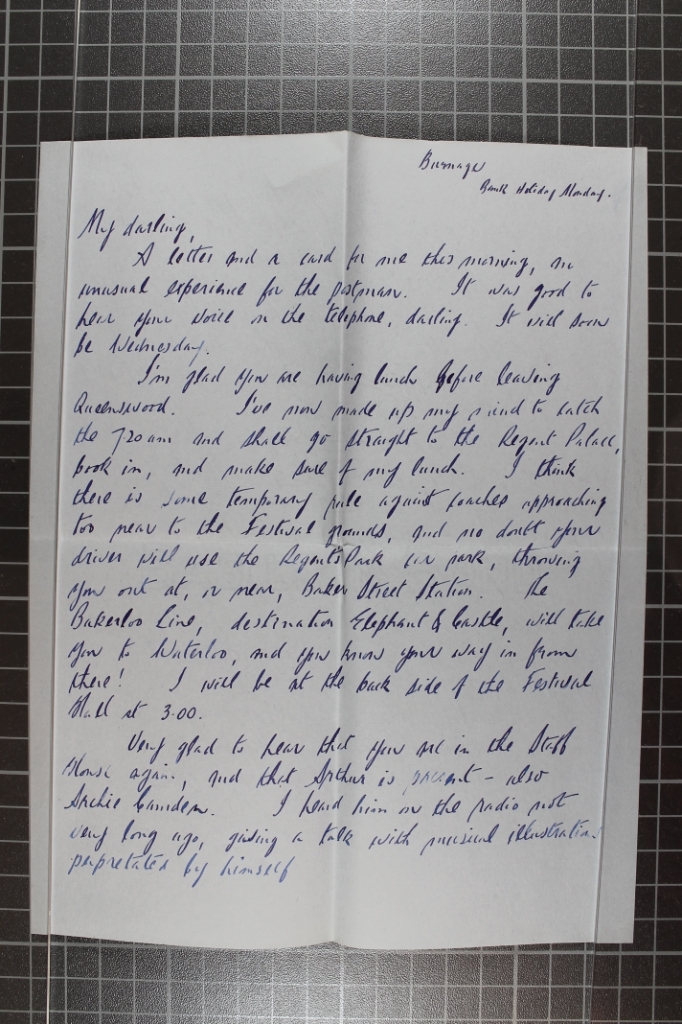 Burnage
Bank Holiday Monday.
My darling,
A letter and a card for me this morning, an
unusual experience for the postman. It was good to
hear your voice on the telephone, darling. It will soon
be Wednesday.
I'm glad you are having lunch before leaving
Queenswood. I've now made up my mind to catch
the 7.20 am and shall go straight to the Regent Palace,
book in, and make sure of my lunch. I think
there is some temporary rule against coaches approaching
too near to the Festival grounds, and no doubt your
driver will use the Regents Park car park, throwing
you out at, or near, Baker Street Station. The
Bakerloo Line, destination Elephant & Castle, will take
you to Waterloo, and you know your way in from
there! I will be at the back side of the Festival
Hall at 3.00.
Very glad to hear that you are in the Staff
House again, and that Arthur is present - also
Archie Camden. I heard him on the radio not
very long ago, giving a talk with musical illustrations
perpretated by himself